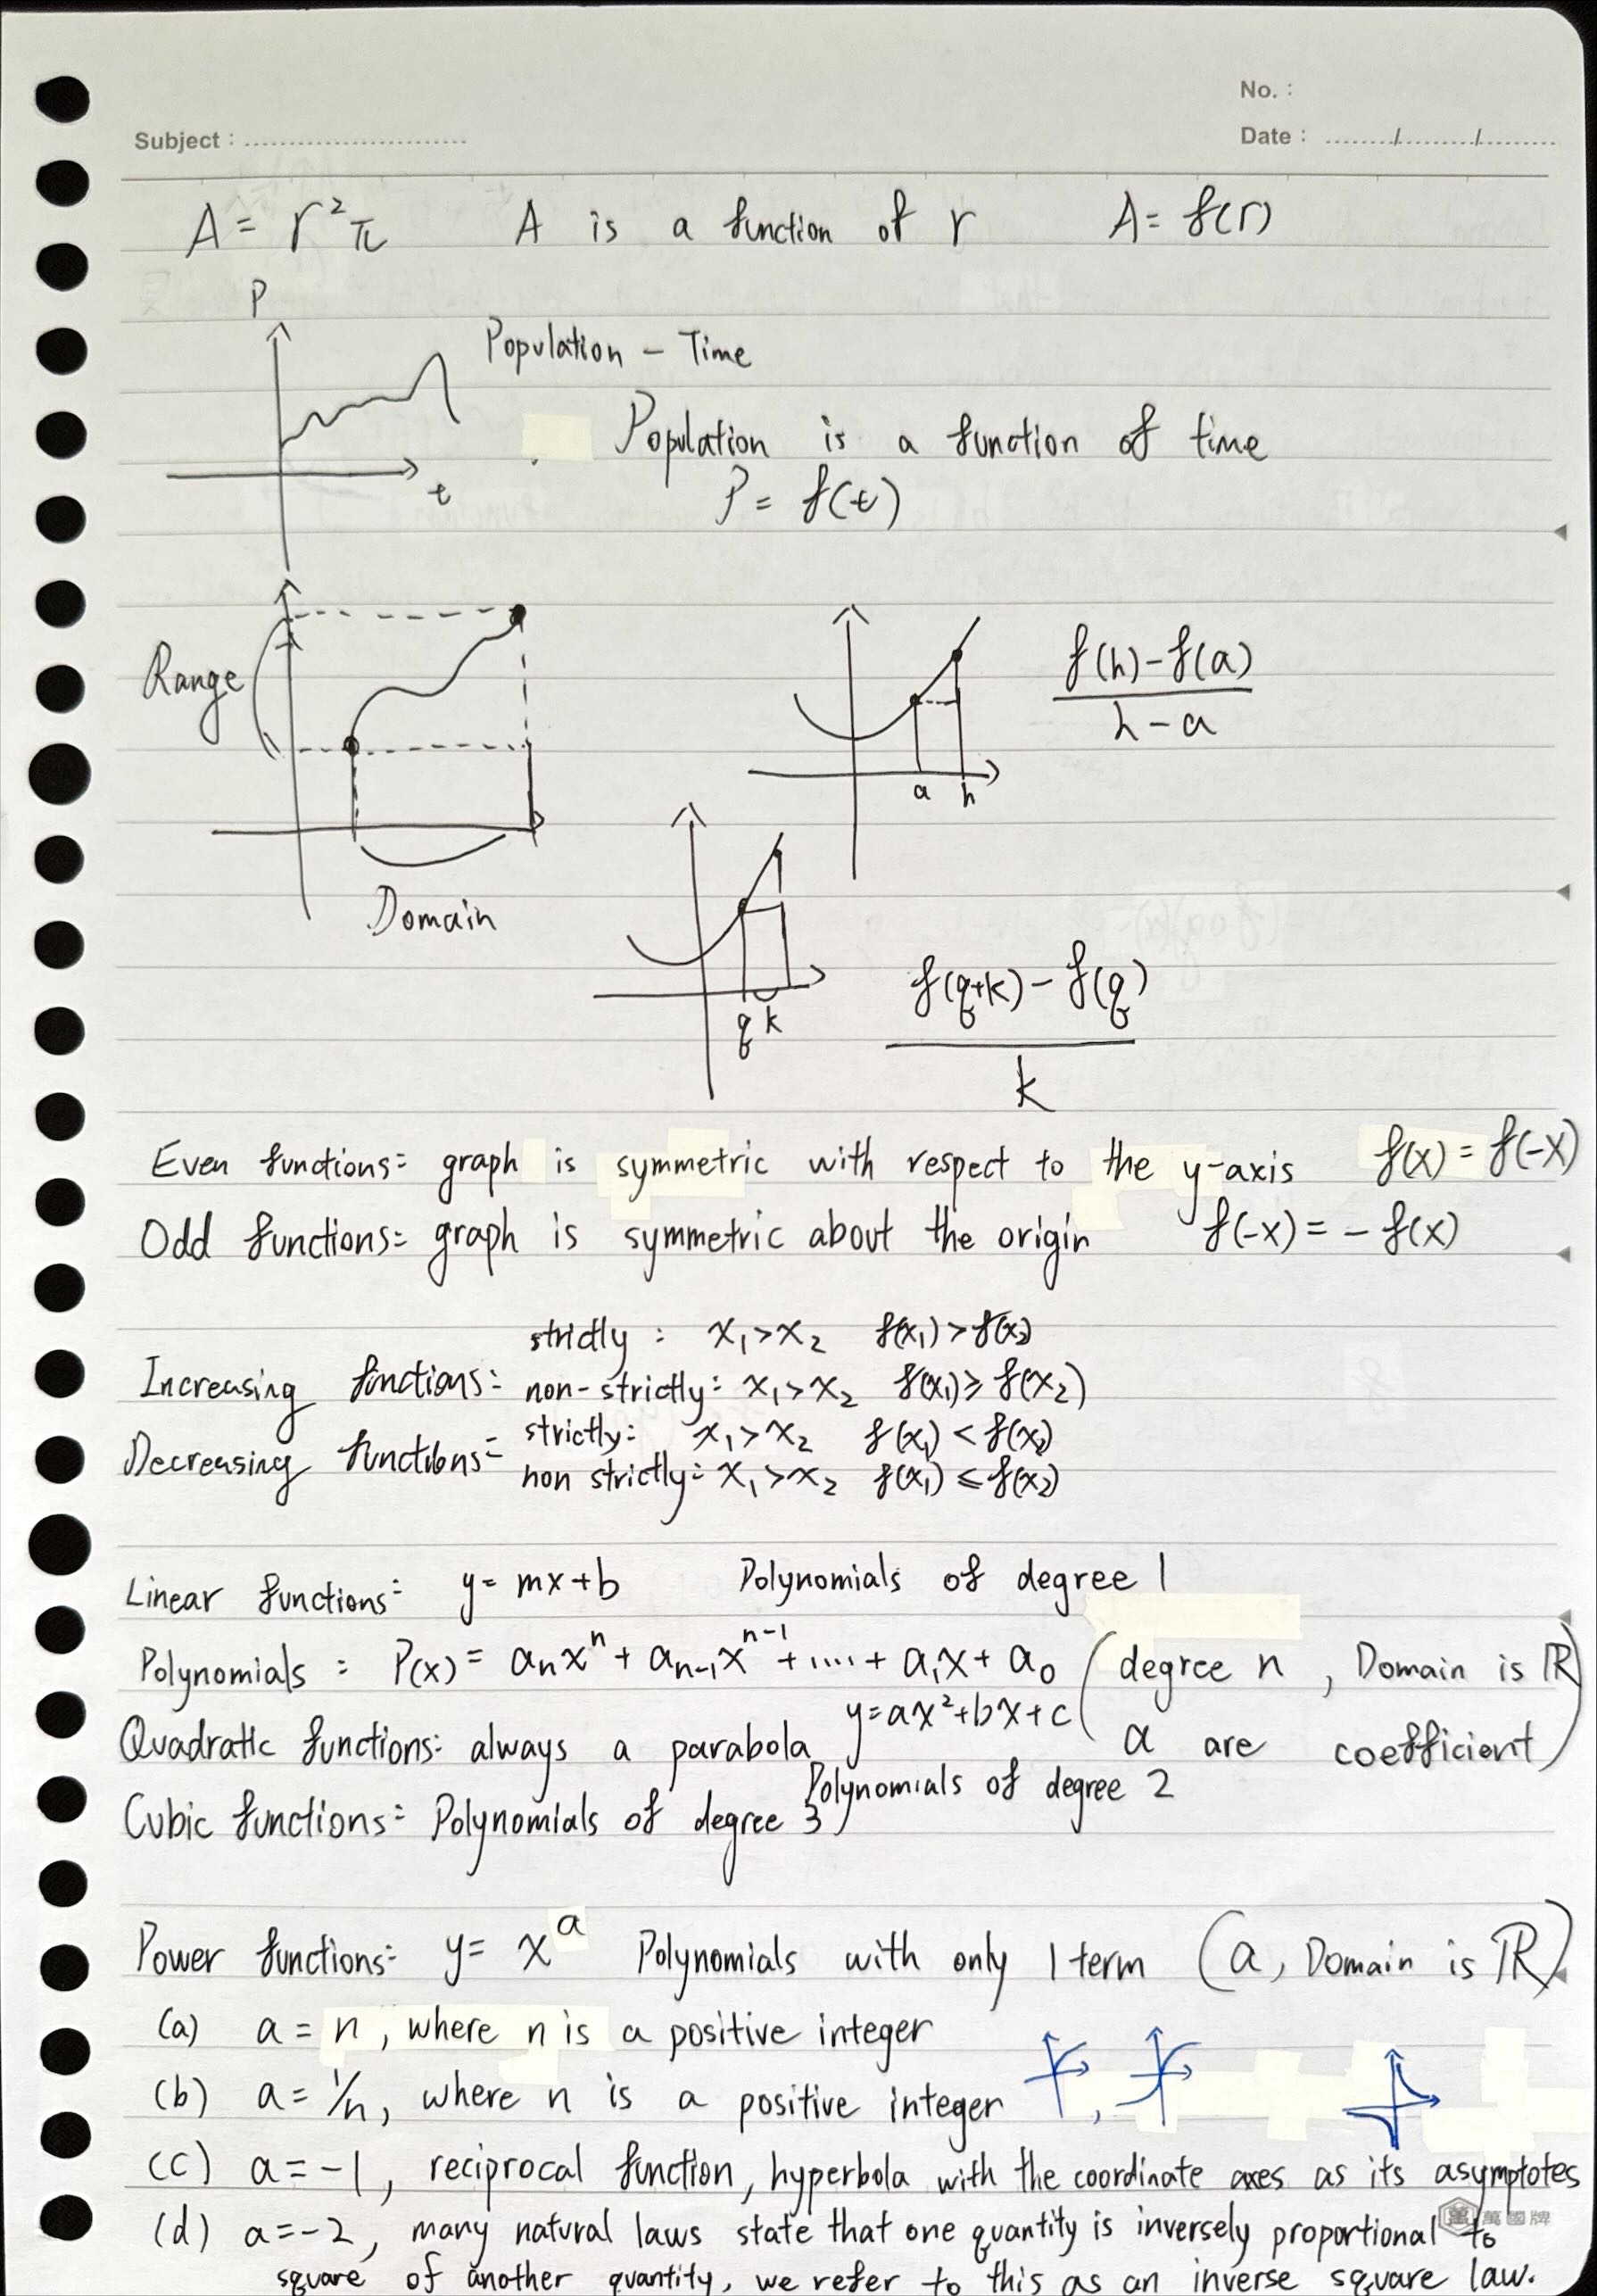 No. :
Subject :
Date : / /
A = r²π A is a function of r A = f(r)
P
Population - Time
Population is a function of time
t
P = f(t)
Range
f(h)-f(a)
h-a
a h
Domain
f(q+k)-f(q)
q k
k
Even functions: graph is symmetric with respect to the y-axis f(x) = f(-x)
Odd functions: graph is symmetric about the origin f(-x) = - f(x)
strictly : x₁>x₂ f(x₁)>f(x₂)
Increasing functions: non-strictly: x₁>x₂ f(x₁)≥f(x₂)
strictly: x₁>x₂ f(x₁)<f(x₂)
Decreasing functions: non strictly: x₁>x₂ f(x₁)≤f(x₂)
Linear functions: y= mx+b Polynomials of degree 1
Polynomials : P(x)= aₙxⁿ + aₙ₋₁xⁿ⁻¹ +....+ a₁x + a₀ (degree n , Domain is ℝ
a are coefficient)
Quadratic functions: always a parabola y=ax²+bx+c
Polynomials of degree 2
Cubic functions: Polynomials of degree 3
Power functions: y= xᵃ Polynomials with only 1 term (a, Domain is ℝ)
(a) a = n, where n is a positive integer
(b) a= 1/n, where n is a positive integer ,
(c) a=-1, reciprocal function, hyperbola with the coordinate axes as its asymptotes
(d) a=-2, many natural laws state that one quantity is inversely proportional to
萬 萬國牌
square of another quantity, we refer to this as an inverse square law.